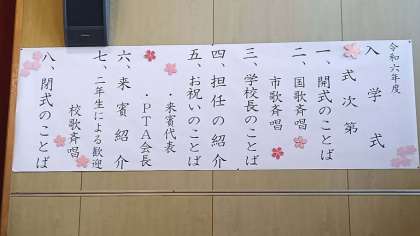 令和六年度
入学式
式次第
一、開式のことば
二、国歌斉唱
市歌斉唱
三、学校長のことば
四、担任の紹介
五、お祝いのことば
・来賓代表
・PTA会長
六、来賓紹介
七、二年生による歓迎
校歌斉唱
八、閉式のことば